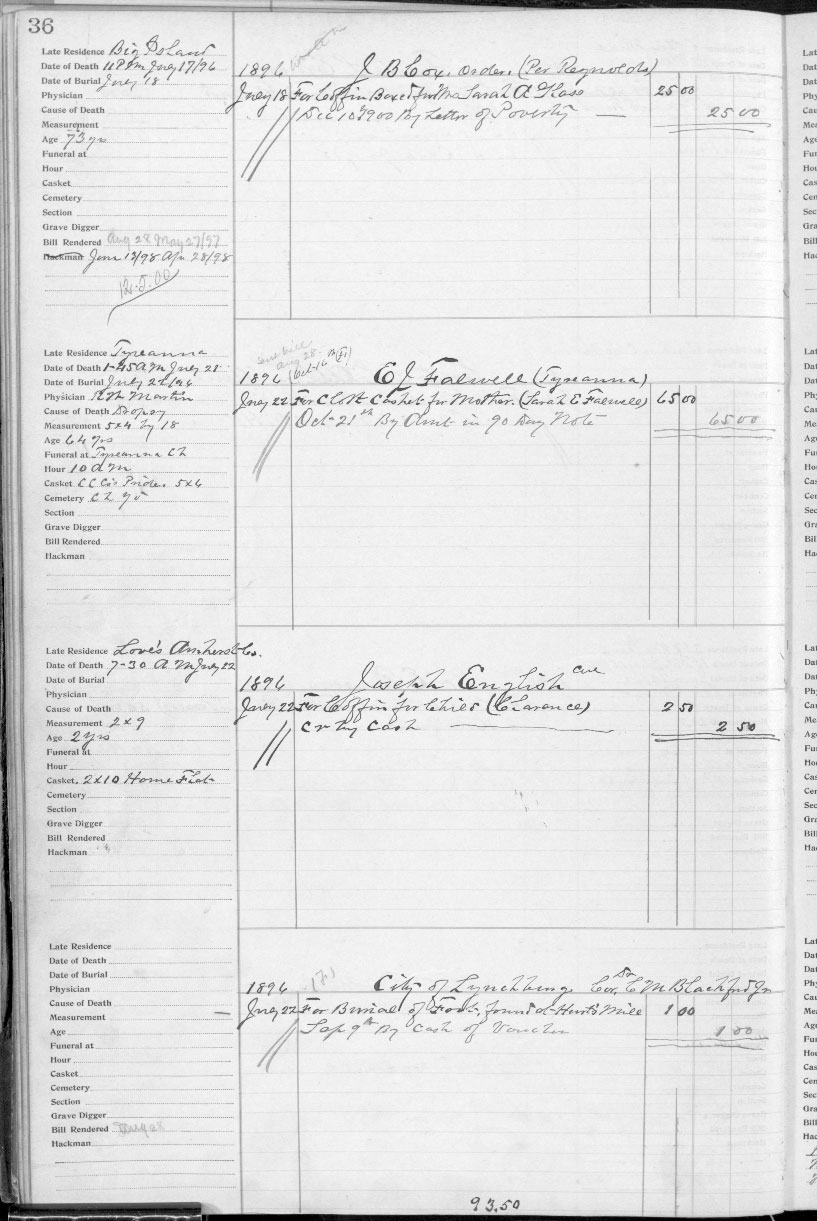 36
Late Residence Big Island
Date of Death 11 P.M July 17/96
Date of Burial July 18
Physician
Cause of Death
Measurement
Age 73 yrs
Funeral at
Hour
Casket
Cemetery
Section
Grave Digger
Bill Rendered Aug 28 May 27/97
Hackman Jan 12/98 Apr 28/98
12.5.00
1896 J B Cox. order. (Per Reynolds)
July 18 For Coffin Boxed for Mrs Sarah A 25 00
Dec 10 1900 By Letter of Poverty — 25 00
Late Residence Tyreanna
Date of Death 1-45 A M July 21
Date of Burial July 22/96
Physician Martin
Cause of Death Dropsy
Measurement 5x4 by 18
Age 64 yrs
Funeral at Tyreanna Ch
Hour 10 A M
Casket C C Co's Pride. 5x6
Cemetery Ch yd
Section
Grave Digger
Bill Rendered
Hackman
sent bill
Aug 28
Oct-16
1896 E J Falwell (Tyreanna)
July 22 For Cloth Casket for Mother. (Sarah E Falwell) 65 00
Oct 21st By Amt in 90 Day Note 65 00
Late Residence Love's Amherst Co.
Date of Death 7-30 A M July 22
Date of Burial
Physician
Cause of Death
Measurement 2x9
Age 2 yrs
Funeral at
Hour
Casket. 2x10 Home Flat
Cemetery
Section
Grave Digger
Bill Rendered
Hackman
1896 Joseph English
July 22 For Coffin for Child (Clarence) 2 50
Cr by Cash — 2 50
Late Residence
Date of Death
Date of Burial
Physician
Cause of Death
Measurement —
Age
Funeral at
Hour
Casket
Cemetery
Section
Grave Digger
Bill Rendered Aug 28
Hackman
1896 City of Lynchburg Cor. Dr C M Blackford Jr
July 22 For Burial of Foot, found at Hurt's Mill 1 00
Sep 9th By Cash of Voucher 1 00
93.50